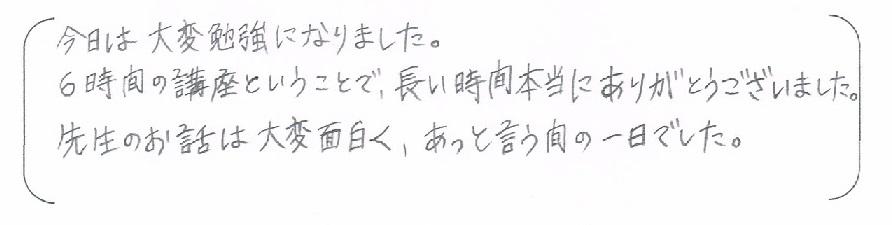 今日は大変勉強になりました。
6時間の講座ということで、長い時間本当にありがとうございました。
先生のお話は大変面白く、あっと言う間の一日でした。